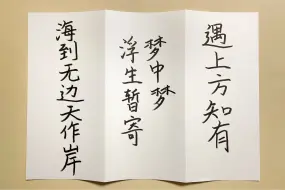 遇上方知有
梦中梦
浮生暂寄
海到无边天作岸